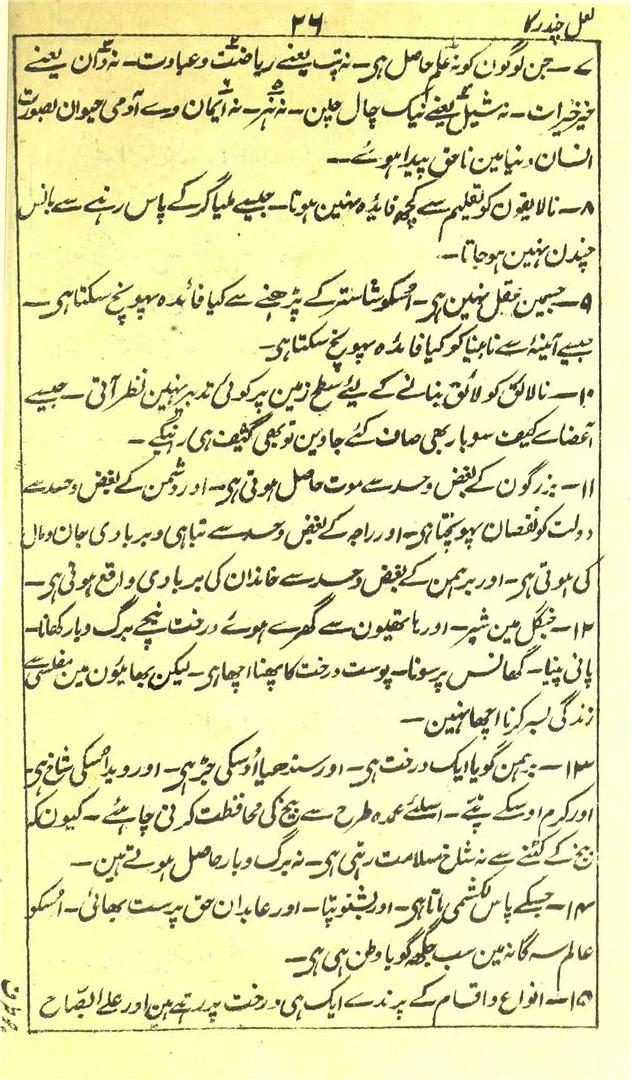 لعل چندرکا
۲۶
۷۔ جن لوگون کو نہ علم حاصل ہی۔ نہ تپ یعنے ریاضت و عبادت۔ نہ دان یعنے
خیر خیرات۔ نہ شیل یعنے نیک چال چلن۔ نہ ہنر۔ نہ ایمان وے آدمی حیوان بصورت
انسان دنیا مین ناحق پیدا ہوئے۔
۸۔ نالایقون کو تعلیم سے کچھ فائدہ نہین ہوتا۔ جیسے ملیاگر کے پاس رہنے سے بانس
چندن نہین ہو جاتا۔
۹۔ جسمین عقل نہین ہی۔ اسکو شاستر کے پڑھنے سے کیا فائدہ پہونچ سکتا ہی۔
جیسے آئینہ سے نابینا کو کیا فائدہ پہونچ سکتا ہی۔
۱۰۔ نالائق کو لائق بنانے کے لیئے سطح زمین پر کوئی تدبیر نہین نظر آتی۔ جیسے
اعضاے کثیف سو بار بھی صاف کئے جاوین تو بھی کثیف ہی رہینگے۔
۱۱۔ بزرگون کے بغض و حسد سے موت حاصل ہوتی ہی۔ اور دشمن کے بغض و حسد سے
دولت کو نقصان پہونچتا ہی۔ اور راجہ کے بغض و حسد سے تباہی و بربادی جان و مال
کی ہوتی ہی۔ اور برہمن کے بغض و حسد سے خاندان کی بربادی واقع ہوتی ہی۔
۱۲۔ جنگل مین شیر۔ اور ہاتھیون سے گھرے ہوئے درخت نیچے برگ و بار کھانا۔
پانی پینا۔ گھانس پر سونا۔ پوست درخت کا پہننا اچھا ہی۔ لیکن بھائیون مین مفلسی سے
زندگی بسر کرنا اچھا نہین۔
۱۳۔ برہمن گویا ایک درخت ہی۔ اور سندھیا اوسکی جڑ ہی۔ اور وید اسکی شاخ ہی۔
اور کرم اوسکے پتے۔ اسلئے عمدہ طرح سے بیخ کی محافظت کرنی چاہئے۔ کیونکہ
بیخ کے کٹنے سے نہ شاخ سلامت رہتی ہی۔ نہ برگ و بار حاصل ہوتے ہین۔
۱۴۔ جسکے پاس لکشمی ماتا ہی۔ اور بشنو پتا۔ اور عابدان حق پرست بھائی۔ اسکو
عالم سہ گانہ مین سب جگھ گویا وطن ہی ہی۔
۱۵۔ انواع و اقسام کے پرندے ایک ہی درخت پر رہتے ہین اور علے الصباح